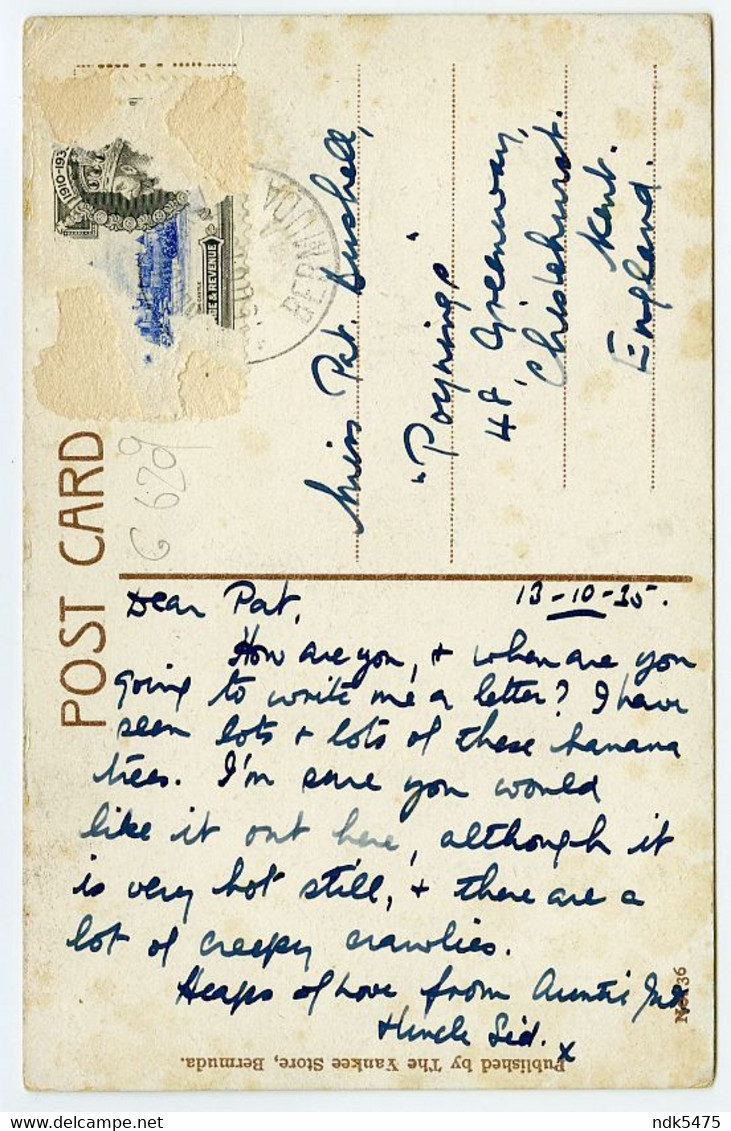 POST CARD
1910-193
E & REVENUE
BERMUDA
G 629
Miss Pat Bushell,
"Poynings"
48, Greenway,
Chislehurst.
Kent.
England.
13-10-35.
Dear Pat,
How are you, + when are you
going to write me a letter? I have
seen lots + lots of these banana
trees. I'm sure you would
like it out here, although it
is very hot still, + there are a
lot of creepy crawlies.
Heaps of Love from Auntie
+ Uncle Sid. x
Published by The Yankee Store, Bermuda.
36
ndk5475